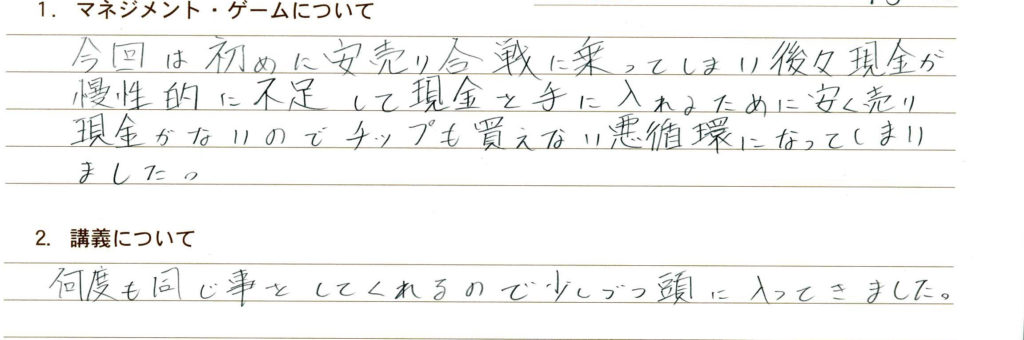 1. マネジメント・ゲームについて
今回は初めに安売り合戦に乗ってしまい後々現金が
慢性的に不足して現金を手に入れるために安く売り
現金がないのでチップも買えない悪循環になってしまい
ました。
2. 講義について
何度も同じ事をしてくれるので少しづつ頭に入ってきました。